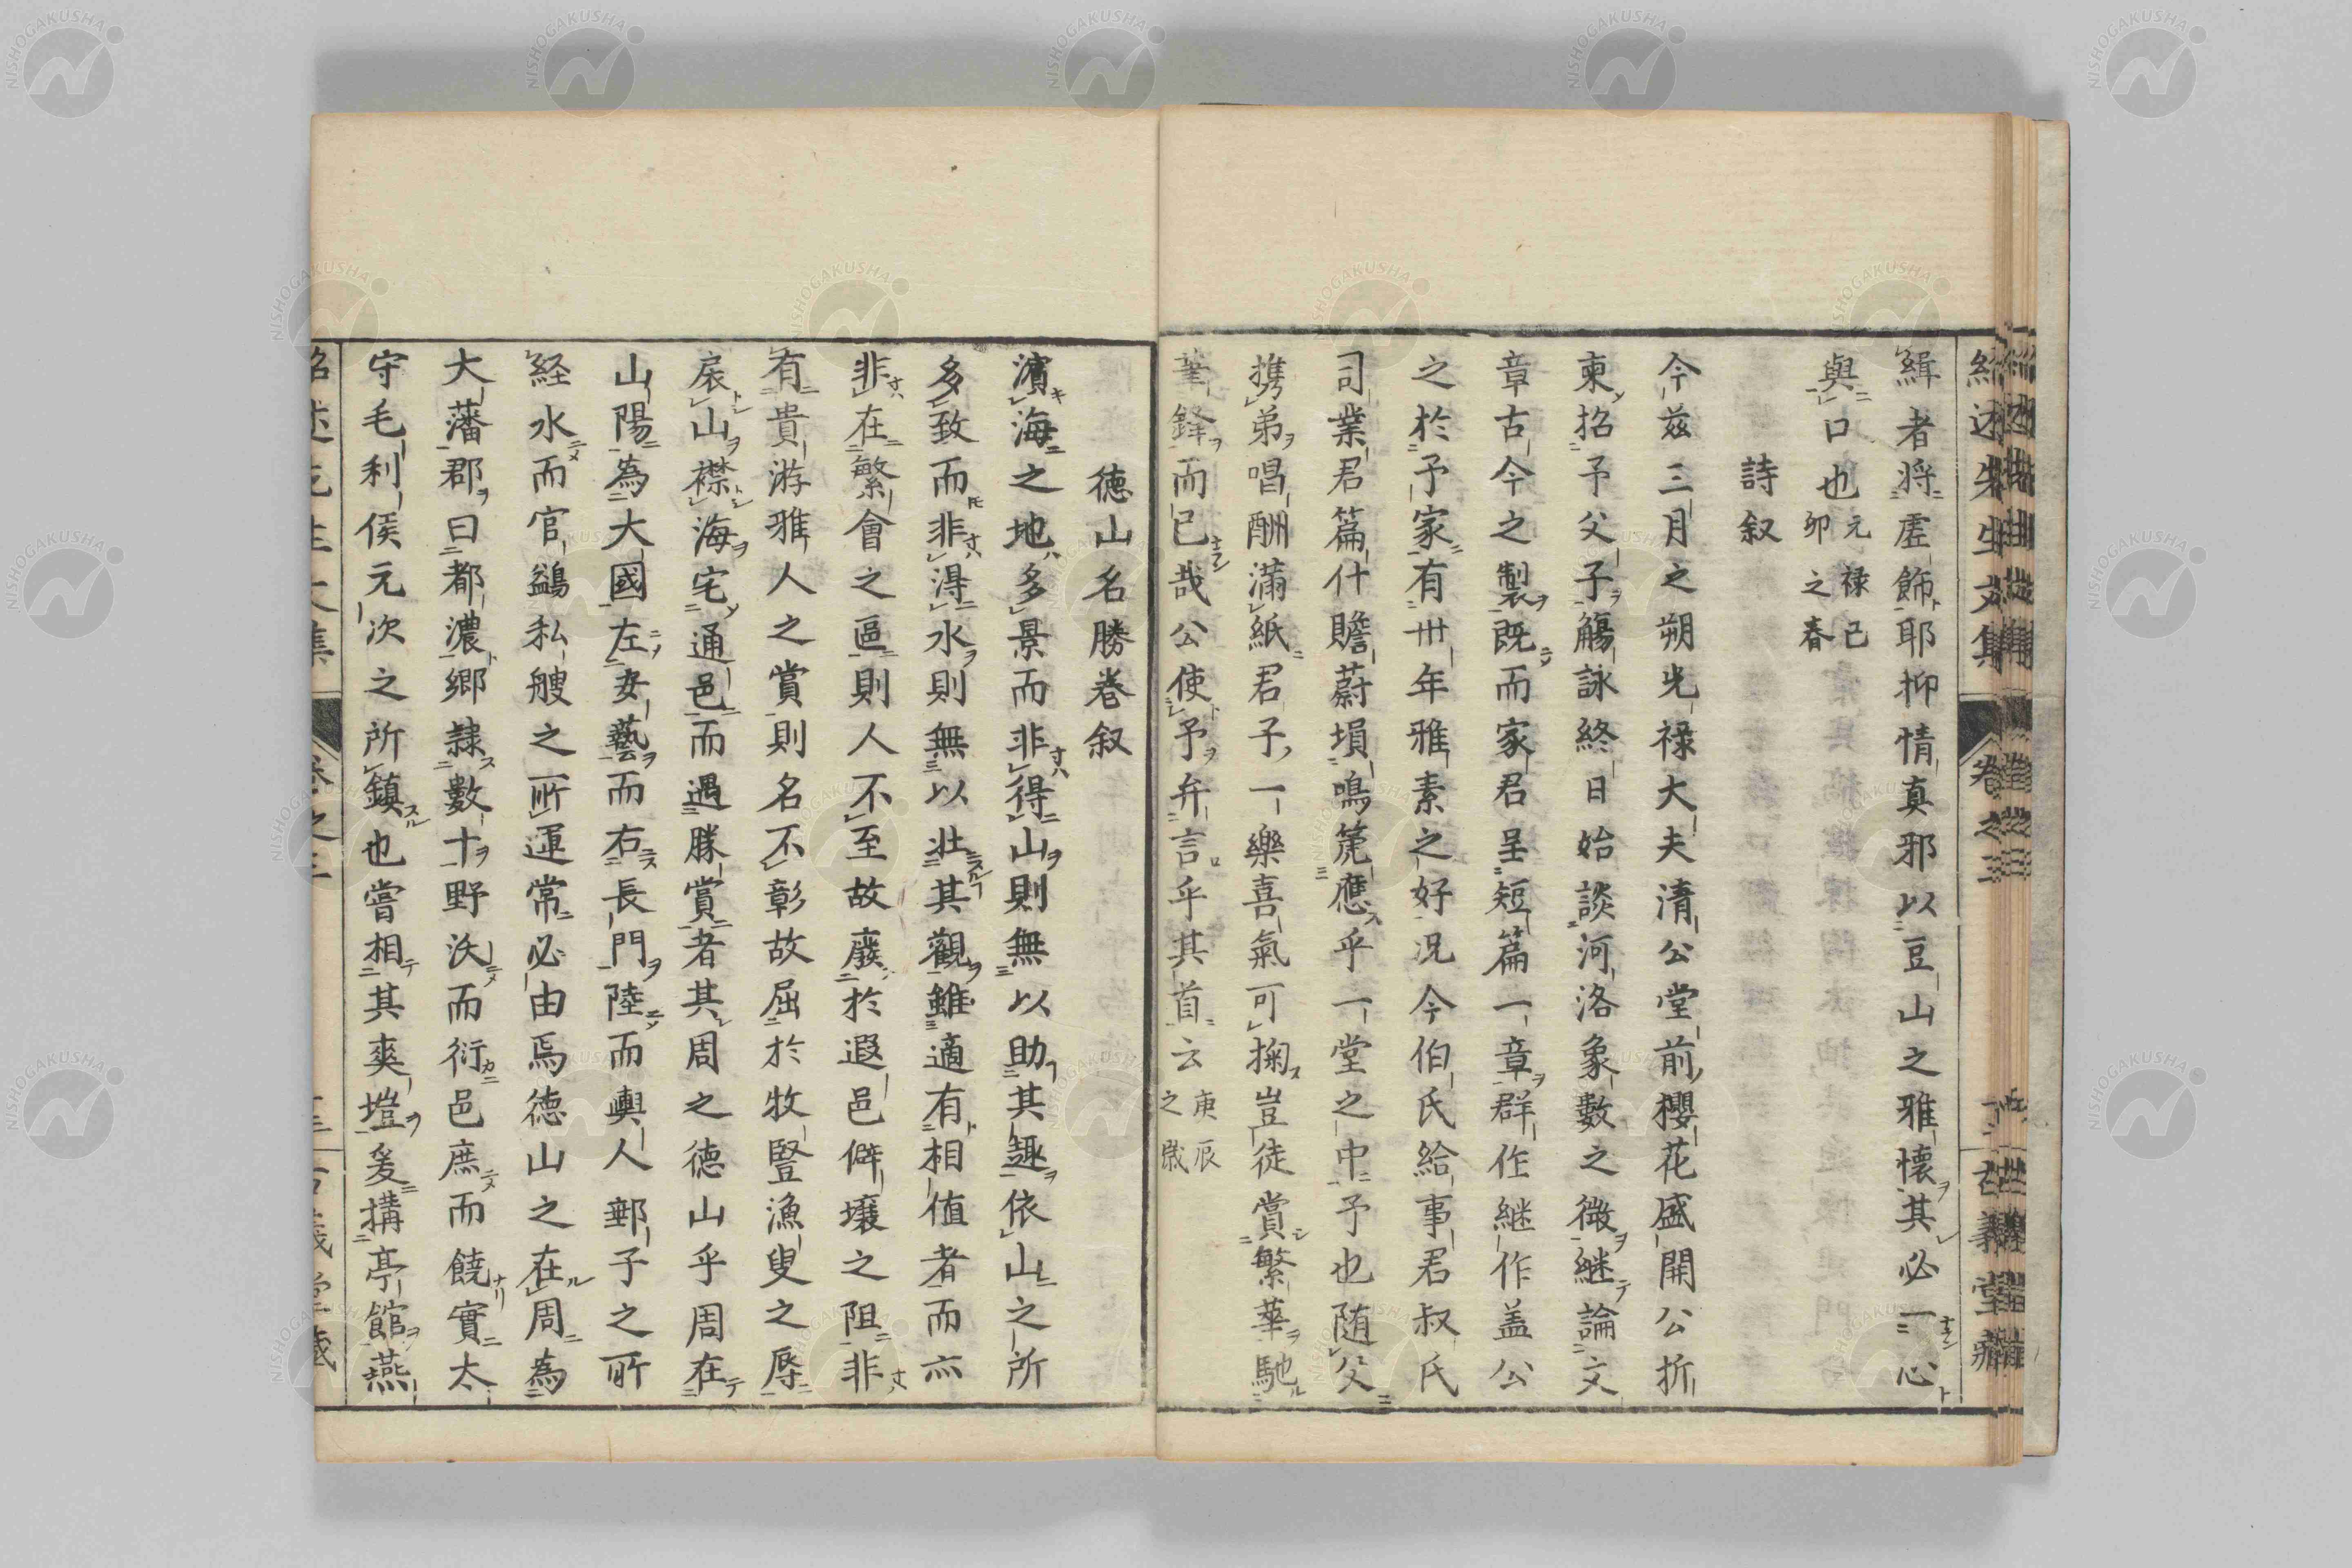 緝者将虛飾耶抑情真邪以豆山之雅懷其必一心
與口也元禄己卯之春
詩叙
今茲三月之朔光禄大夫清公堂前櫻花盛開公折
柬招予父子觴詠終日始談河洛象數之微継論文
章古今之製既而家君呈短篇一章群作継作盖公
之於予家有卅年雅素之好况今伯氏給事君叔氏
司業君篇什贍蔚塤鳴箎應乎一堂之中予也随父
携弟唱酬滿紙君子一樂喜氣可掬豈徒賞繁華馳
筆鋒而已哉公使予弁言乎其首云庚辰之歲
徳山名勝巻叙
濱海之地多景而非得山則無以助其趣依山之所
多致而非得水則無以壮其觀雖適有相値者而亦
非在繁會之區則人不至故廢於遐邑僻壤之阻非
有貴游雅人之賞則名不彰故屈於牧豎漁叟之辱
扆山襟海宅通邑而遇勝賞者其周之徳山乎周在
山陽為大國左安藝而右長門陸而輿人郵子之所
経水而官鷁私艘之所運常必由焉徳山之在周為
大藩郡曰都濃郷隷數十野沃而衍邑庶而饒實太
守毛利侯元次之所鎮也嘗相其爽塏爰搆亭館燕
紹述先生文集
巻之三
古義堂藏